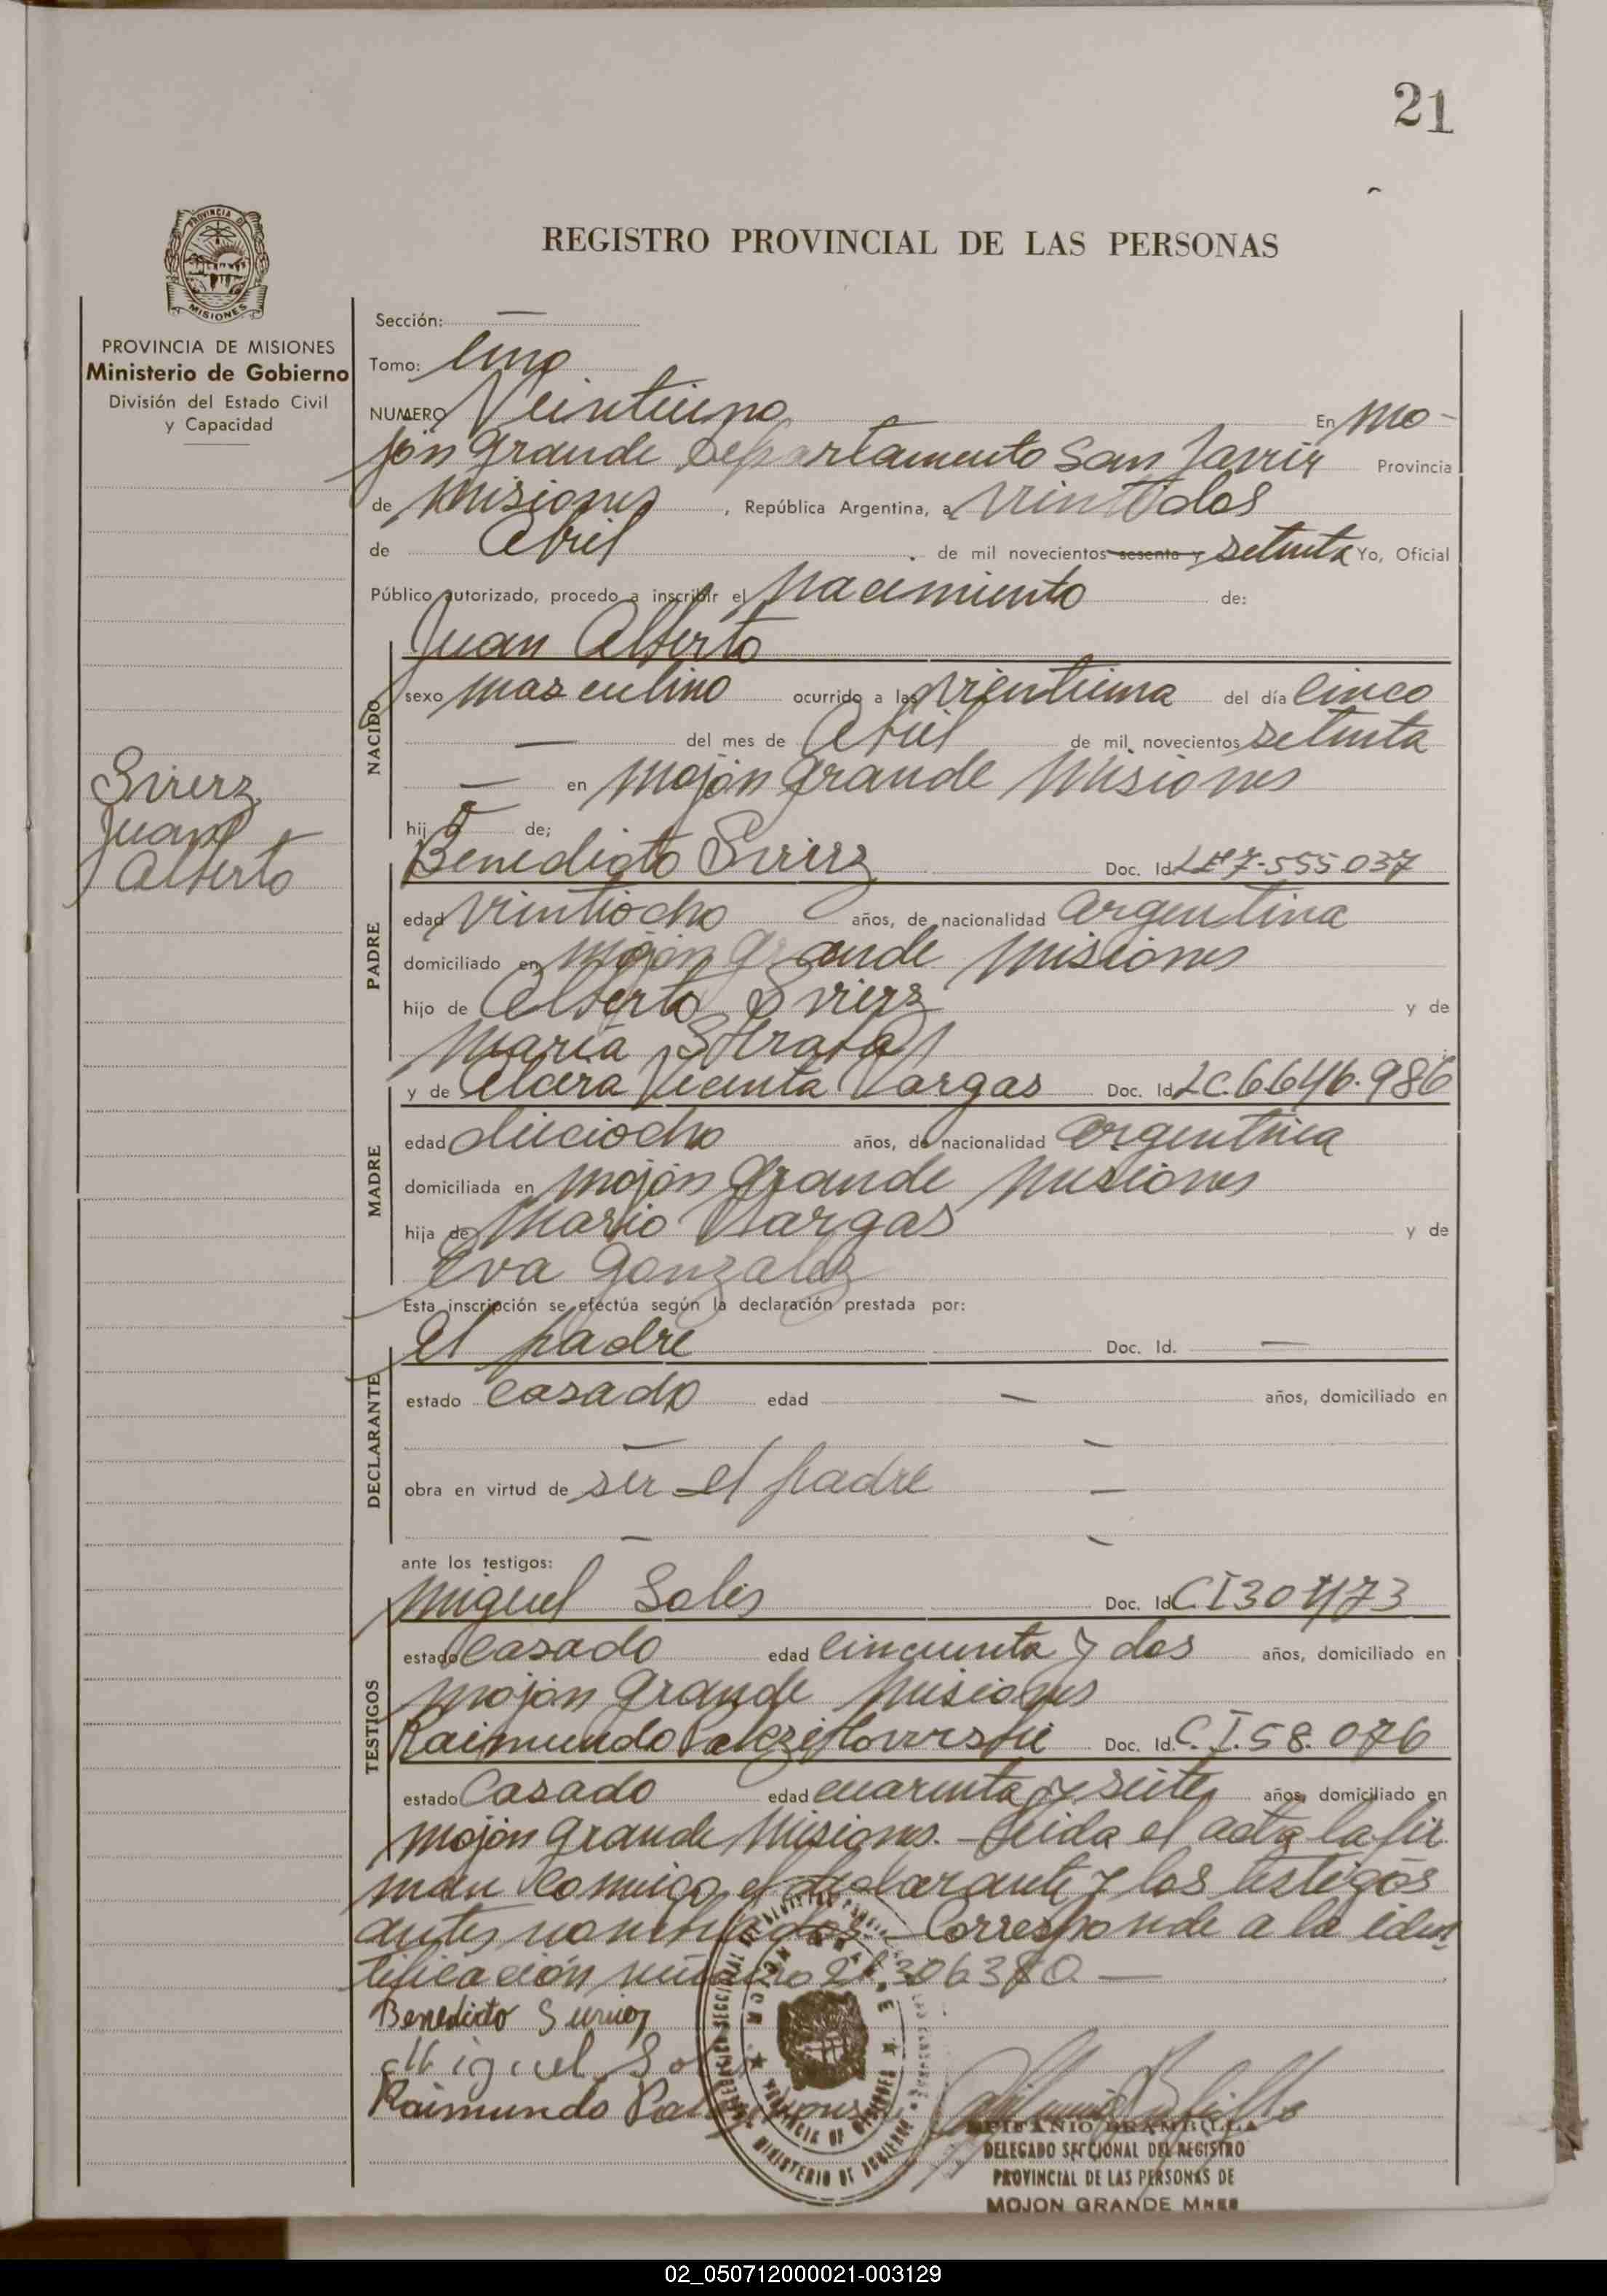 21
REGISTRO PROVINCIAL DE LAS PERSONAS
PROVINCIA DE
MISIONES
PROVINCIA DE MISIONES
Ministerio de Gobierno
División del Estado Civil
y Capacidad
Sección: —
Tomo: Uno
NUMERO Veintiuno En Mo-
jón Grande Departamento San Javier Provincia
de Misiones, República Argentina, a Veintidos
de Abril de mil novecientos sesenta y setenta Yo, Oficial
Público autorizado, procedo a inscribir el nacimiento de:
Juan Alberto
NACIDO
sexo masculino ocurrido a las veintiuna del día cinco
— del mes de Abril de mil novecientos setenta
— en Mojón Grande Misiones
hijo de;
Svierz
Juan
Alberto
PADRE
Benedicto Svierz Doc. Id. LE 7.555.037
edad veintiocho años, de nacionalidad Argentina
domiciliado en Mojón Grande Misiones
hijo de Alberto Svierz y de
María
MADRE
y de Vicenta Vargas Doc. Id. LC.6.646.986
edad dieciocho años, de nacionalidad Argentina
domiciliada en Mojón Grande Misiones
hija de Mario Vargas y de
Eva Gonzalez
Esta inscripción se efectúa según la declaración prestada por:
DECLARANTE
El padre Doc. Id. —
estado casado edad — años, domiciliado en
— —
obra en virtud de ser el padre —
— —
ante los testigos:
TESTIGOS
Miguel Solis Doc. Id. C.I
estado casado edad cincuenta y dos años, domiciliado en
Mojón Grande Misiones
Raimundo Doc. Id. C.I.58.076
estado Casado edad cuarenta y siete años, domiciliado en
Mojón Grande Misiones. — Leida el acta la fir
man conmigo el declarante y los testigos
antes nombrados. — Corresponde a la iden
tificación número 21.306380 —
Benedicto
Miguel Sol
Raimundo
MOJON GRANDE
PROVINCIA DE MISIONES
MINISTERIO DE GOBIERNO
EPIFANIO BRAMBILLA
DELEGADO SECCIONAL DEL REGISTRO
PROVINCIAL DE LAS PERSONAS DE
MOJON GRANDE MNES
02_050712000021-003129